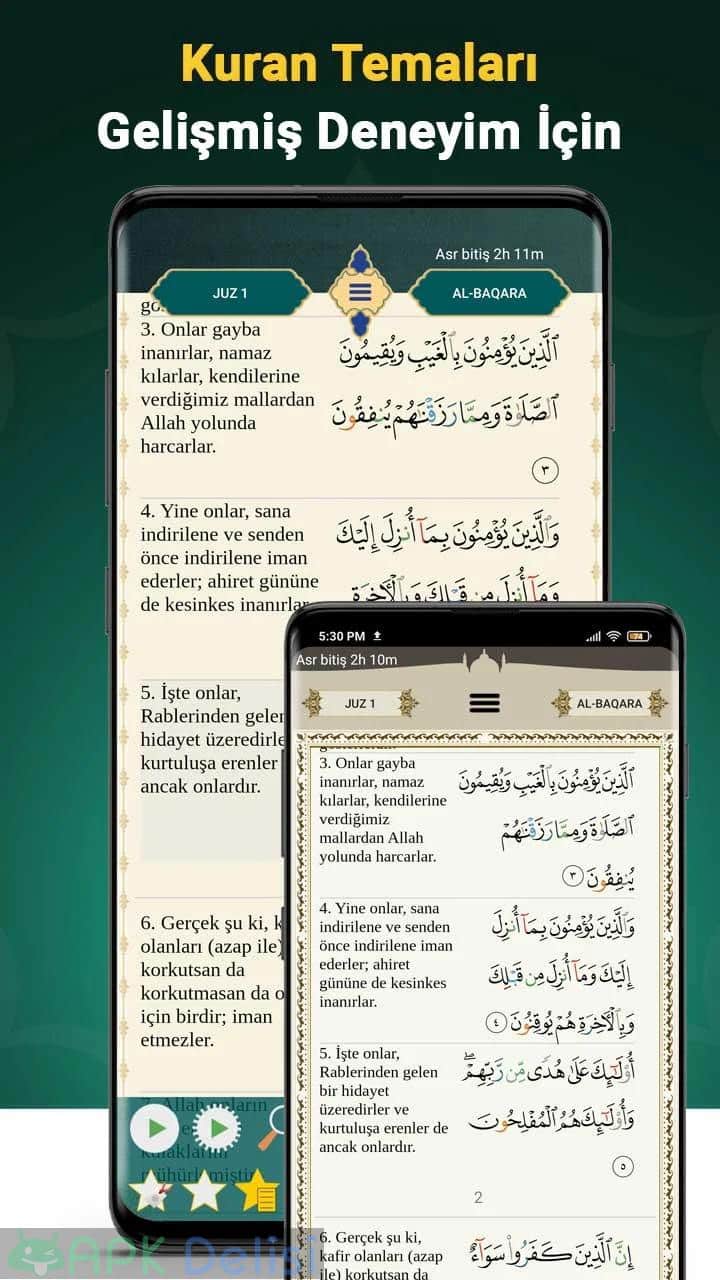 Kuran Temaları
Gelişmiş Deneyim İçin
Asr bitiş 2h 11m
JUZ 1
AL-BAQARA
3. Onlar gayba
inanırlar, namaz
kılarlar, kendilerine
verdiğimiz mallardan
Allah yolunda
harcarlar.
ٱلَّذِينَ يُؤْمِنُونَ بِٱلْغَيْبِ وَيُقِيمُونَ
ٱلصَّلَوٰةَ وَمِمَّا رَزَقْنَٰهُمْ يُنفِقُونَ
٣
4. Yine onlar, sana
indirilene ve senden
önce indirilene iman
ederler; ahiret gününe
de kesinkes inanırlar
وَٱلَّذِينَ يُؤْمِنُونَ بِمَآ أُنزِلَ إِلَيْكَ
وَمَآ أُنزِلَ مِن قَبْلِكَ وَبِٱلْأَخِرَةِ
5. İşte onlar,
Rablerinden gelen
hidayet üzeredirle
kurtuluşa erenler
ancak onlardır.
6. Gerçek şu ki, k
olanları (azap ile)
korkutsan da
korkutmasan da o
için birdir; iman
etmezler.
7. Allah onların
kulaklarını
mühürlemiştir
5:30 PM
74
Asr bitiş 2h 10m
JUZ 1
AL-BAQARA
3. Onlar gayba
inanırlar, namaz
kılarlar, kendilerine
verdiğimiz
mallardan Allah
yolunda harcarlar.
ٱلَّذِينَ يُؤْمِنُونَ بِٱلْغَيْبِ وَيُقِيمُونَ
ٱلصَّلَوٰةَ وَمِمَّا رَزَقْنَٰهُمْ
يُنفِقُونَ ٣
4. Yine onlar, sana
indirilene ve senden
önce indirilene iman
ederler; ahiret
gününe de kesinkes
inanırlar.
وَٱلَّذِينَ يُؤْمِنُونَ بِمَآ أُنزِلَ
إِلَيْكَ وَمَآ أُنزِلَ مِن قَبْلِكَ
وَبِٱلْأَخِرَةِ هُمْ يُوقِنُونَ ٤
5. İşte onlar,
Rablerinden gelen
bir hidayet
üzeredirler ve
kurtuluşa erenler de
ancak onlardır.
أُو۟لَٰٓئِكَ عَلَىٰ هُدًى مِّن رَّبِّهِمْ ۖ
وَأُو۟لَٰٓئِكَ هُمُ ٱلْمُفْلِحُونَ
٥
2
6. Gerçek şu ki,
kafir olanları (azap
ile) korkutsan da
إِنَّ ٱلَّذِينَ كَفَرُوا۟ سَوَآءٌ
APK Delisi